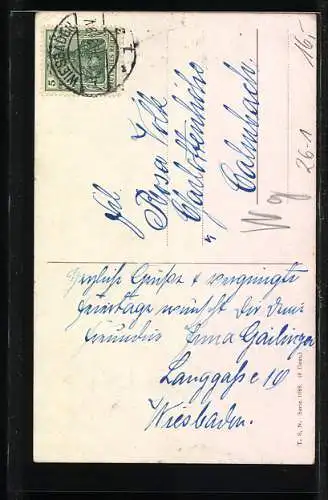 WIESBADEN
5
Frl.
Rosa Volk
Charlottenhöhe
Calmbach
Wg
26-1
16,-
Herzliche Grüße & vergnügte
Feiertage wünscht Dir Deine
Freundin Anna Gailinger
Langgaße 16
Wiesbaden.
T. S. N. Serie 1988. (6 Dess.)